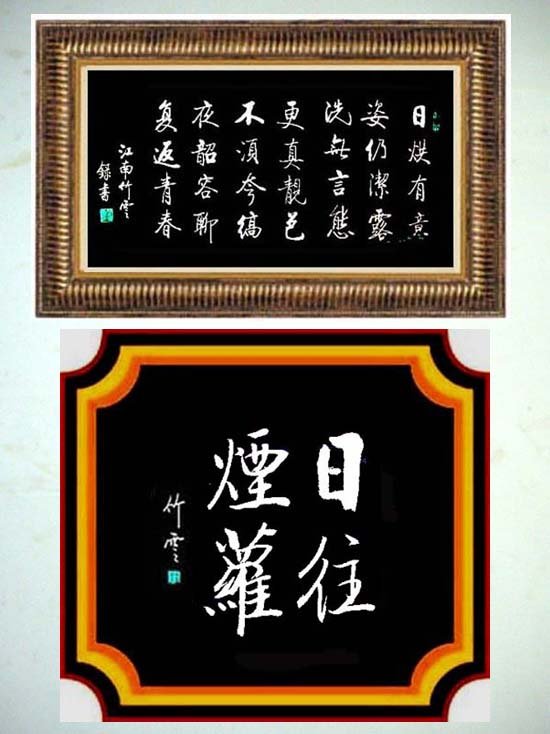 日烘有意
姿仍潔露
洗無言態
更真靚色
不須夸縞
夜韶容聊
复返青春
江南竹雲
録書
日往
煙蘿
竹雲